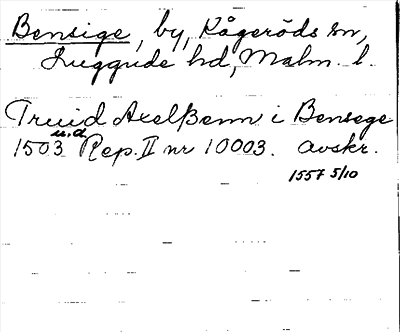 Bensige, by, Kågeröds sn,
Luggude hd, Malm. l.
Truid Axelßenn i Bensege
1503 u.d. Rep. II nr 10003. avskr.
1557 5/10